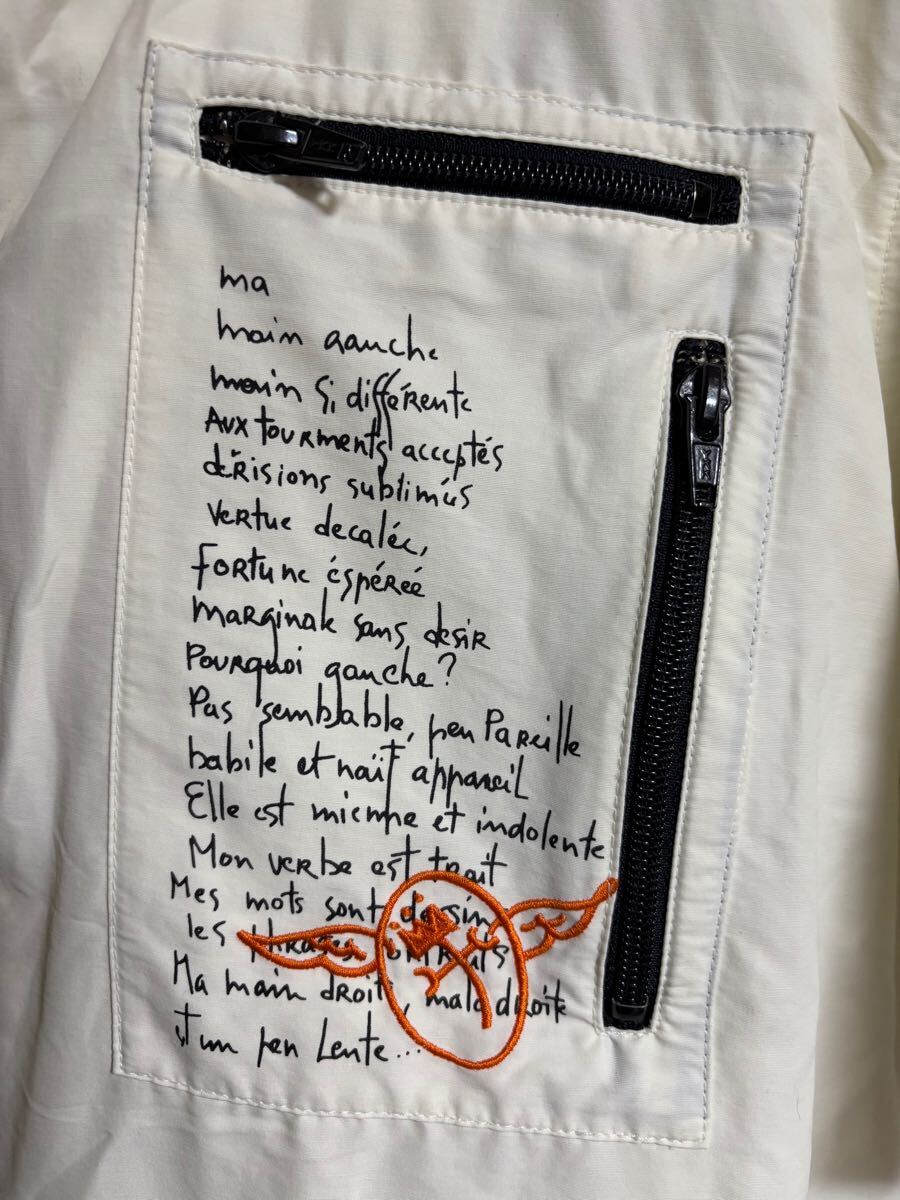 ma
main gauche
main si différente
Aux tourments acceptés
dérisions sublimés
vertue decalée,
fortune éspéreé
marginale sans desir
Pourquoi gauche?
Pas semblable, peu Pareille
babile et naïf appareil
Elle est mienne et indolente
Mon verbe est trait
Mes mots sont dessin
les phrases
Ma main droite, maladroite
et un peu Lente...